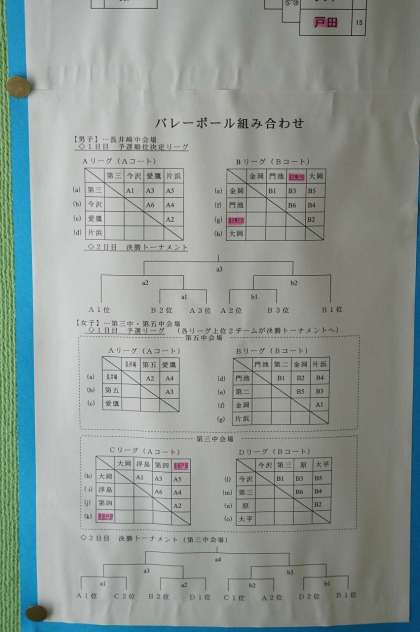 戸田 15
バレーボール組み合わせ
【男子】―長井崎中会場
◇1日目 予選順位決定リーグ
Aリーグ(Aコート) Bリーグ(Bコート)
第三 今沢 愛鷹 片浜 金岡 門池 大岡
(a) 第三 A1 A3 A5 (e) 金岡 B1 B3 B5
(b) 今沢 A6 A4 (f) 門池 B6 B4
(c) 愛鷹 A2 (g) B2
(d) 片浜 (h) 大岡
◇2日目 決勝トーナメント
a3
a2 b2
a1 b1
A1位 B2位 A3位 A2位 B3位 B1位
【女子】―第三中・第五中会場
◇1日目 予選リーグ (各リーグ上位2チームが決勝トーナメントへ)
第五中会場
Aリーグ(Aコート) Bリーグ(Bコート)
第五 愛鷹 門池 第二 金岡 片浜
(a) A2 A4 (d) 門池 B1 B2 B4
(b) 第五 A3 (e) 第二 B5 B3
(c) 愛鷹 (f) 金岡 A1
(g) 片浜
第三中会場
Cリーグ(Aコート) Dリーグ(Bコート)
大岡 浮島 第四 今沢 第三 原 大平
(h) 大岡 A1 A3 A5 (l) 今沢 B1 B3 B5
(i) 浮島 A6 A4 (m) 第三 B6 B4
(j) 第四 A2 (n) 原 B2
(k) (o) 大平
◇2日目 決勝トーナメント(第三中会場)
a4
a3 b3
a1 a2 b2 b1
A1位 C2位 B2位 D1位 C1位 A2位 D2位 B1位